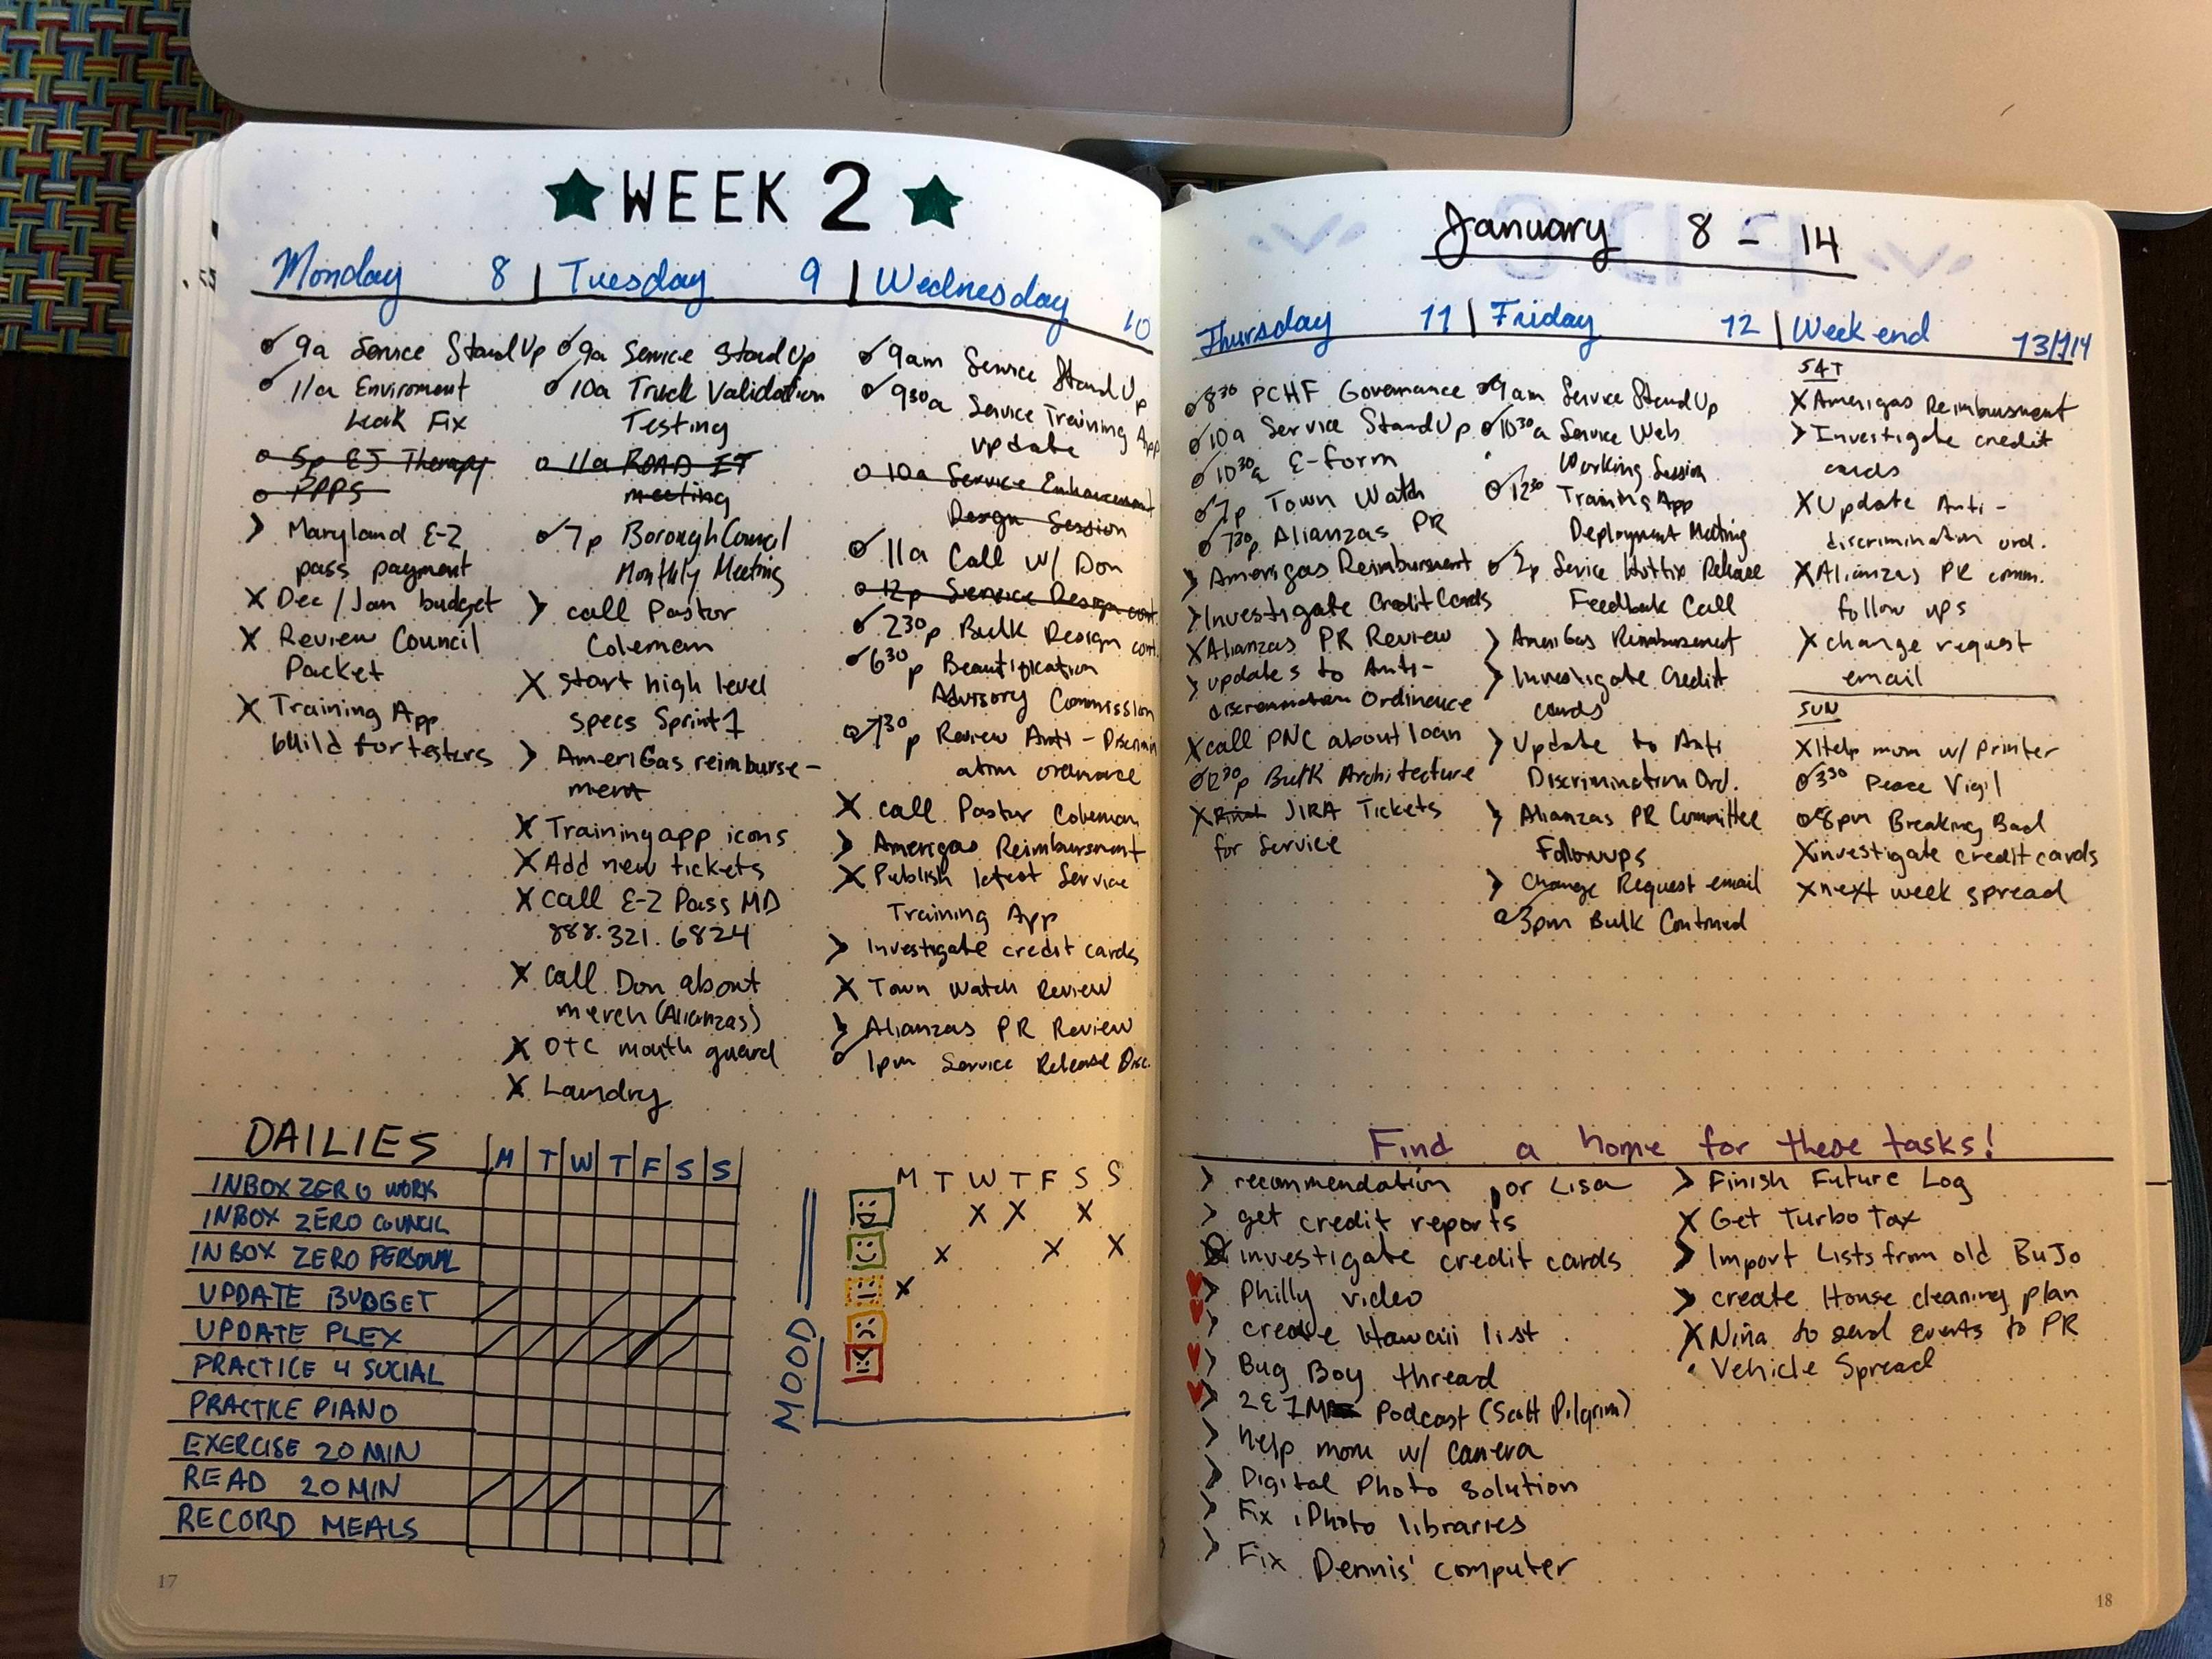 ★ WEEK 2 ★
Monday 8 | Tuesday 9 | Wednesday 10
9a Service StandUp
11a Enviroment
Leak Fix
5p EJ Therapy
PPPS
> Maryland E-Z
pass payment
X Dec/Jan budget
X Review Council
Packet
X Training App
build for testers
9a Service StandUp
10a Truck Validation
Testing
11a ROAD IT
meeting
7p Borough Council
Monthly Meeting
> call Pastor
Coleman
X start high level
specs Sprint 1
> AmeriGas reimburse-
ment
X Training app icons
X Add new tickets
X call E-Z Pass MD
888.321.6824
X call Don about
merch (Alianzas)
X OTC mouth guard
X Laundry
9am Service StandUp
930a Service Training App
update
10a Service Enhancement
Design Session
11a Call w/ Don
12p Service Design cont.
230p Bulk Design cont.
630p Beautification
Advisory Commission
730p Review Anti-Discrimin
ation ordinance
X call Pastor Coleman
> Amerigas Reimbursment
X Publish latest Service
Training App
> Investigate credit cards
X Town Watch Review
> Alianzas PR Review
1pm Service Release Disc.
DAILIES
M T W T F S S
INBOX ZERO WORK
INBOX ZERO COUNCIL
INBOX ZERO PERSONAL
UPDATE BUDGET
UPDATE PLEX
PRACTICE 4 SOCIAL
PRACTICE PIANO
EXERCISE 20 MIN
READ 20 MIN
RECORD MEALS
MOOD
M T W T F S S
X X X
X X X
X
17
January 8 - 14
Thursday 11 | Friday 12 | Weekend 13/14
830 PCHF Governance
10a Service StandUp
1030a E-form
7p Town Watch
730p Alianzas PR
> Amerigas Reimbursment
> Investigate Credit Cards
X Alianzas PR Review
> updates to Anti-
discrimination Ordinance
X call PNC about loan
230p Bulk Architecture
X JIRA Tickets
for Service
9am Service StandUp
1030a Service Web
Working Session
1230 Training App
Deployment Meeting
2p Service Hotfix Release
Feedback Call
> AmeriGas Reimbursement
> Investigate Credit
cards
> Update to Anti
Discrimination Ord.
> Alianzas PR Committee
Followups
> Change Request email
3pm Bulk Continued
SAT
X Amerigas Reimbursment
> Investigate credit
cards
X Update Anti-
discrimination ord.
X Alianzas PR comm.
follow ups
X change request
email
SUN
X Help mom w/ printer
330 Peace Vigil
8pm Breaking Bad
X investigate credit cards
X next week spread
Find a home for these tasks!
> recommendation for Lisa
> get credit reports
investigate credit cards
> Philly video
> create Hawaii list
> Bug Boy thread
> Podcast (Scott Pilgrim)
> help mom w/ camera
> Digital Photo solution
> Fix iPhoto libraries
> Fix Dennis' computer
> Finish Future Log
X Get Turbo Tax
> Import Lists from old BuJo
> create House cleaning plan
X Nina to send events to PR
• Vehicle Spread
18